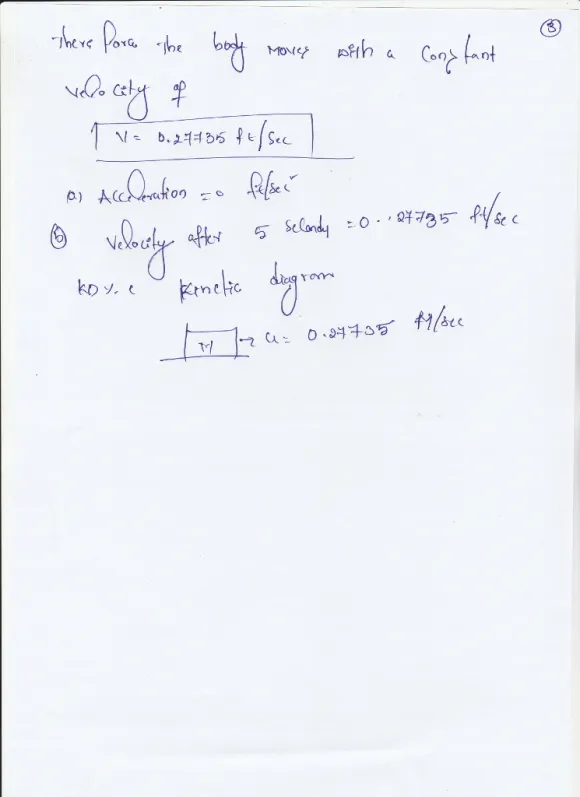 3
There fore the body moves with a Constant
velocity of
V = 0.27735 ft/sec
a) Acceleration = 0 ft/sec²
b) velocity after 5 Seconds = 0.27735 ft/sec
KD kinetic diagram
M → u = 0.27735 ft/sec